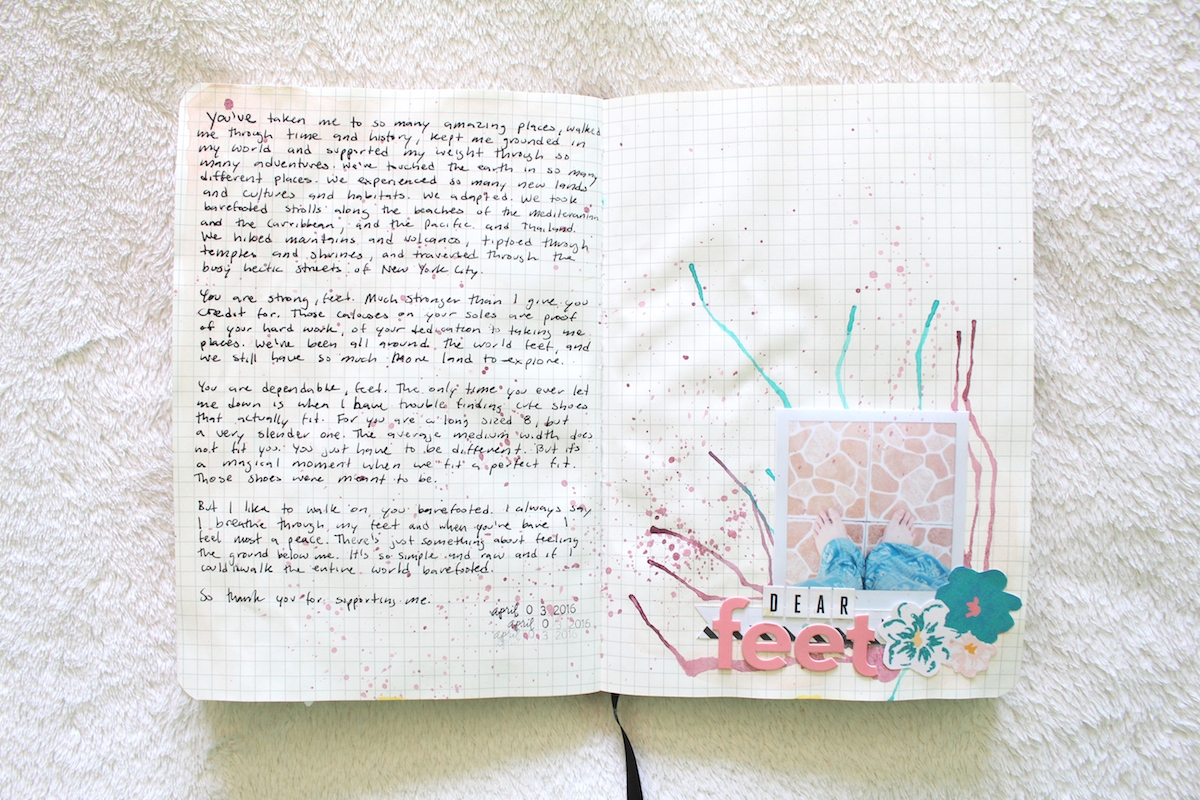 You've taken me to so many amazing places, walked
me through time and history, kept me grounded in
my world and supported my weight through so
many adventures. We've touched the earth in so many
different places. We experienced so many new lands
and cultures and habitats. We adapted. We took
barefooted strolls along the beaches of the Mediteranian
and the Carribbean, and the Pacific and Thailand.
We hiked mountains and volcanos, tiptoed through
temples and shrines, and traversed through the
busy hectic streets of New York City.
You are strong, feet. Much stronger than I give you
credit for. Those calouses on your soles are proof
of your hard work, of your dedication to taking me
places. We've been all around the world feet, and
we still have so much more land to explore.
You are dependable, feet. The only time you ever let
me down is when I have trouble finding cute shoes
that actually fit. For you are a long sized 8, but
a very slender one. The average medium width does
not fit you. You just have to be different. But it's
a magical moment when we fit a perfect fit.
Those shoes were meant to be.
But I like to walk on you barefooted. I always say
I breathe through my feet and when you're bare I
feel most a peace. There's just something about feeling
the ground below me. It's so simple and raw and if I
could walk the entire world barefooted.
So thank you for supporting me.
april 0 3 2016
april 0 3 2016
april 0 3 2016
DEAR
feet